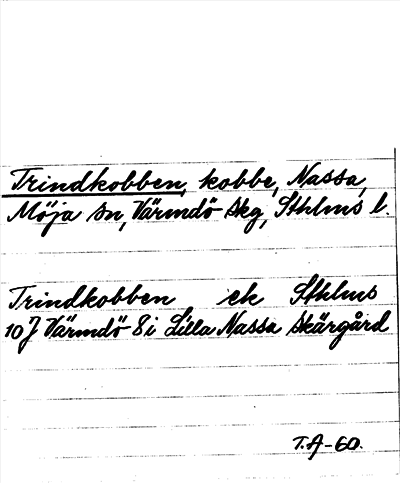 Trindkobben, kobbe, Nassa,
Möja sn, Värmdö skg, Sthlms l.
Trindkobben ek Sthlms
10 J Värmdö 8 i Lilla Nassa skärgård
T.A-60.